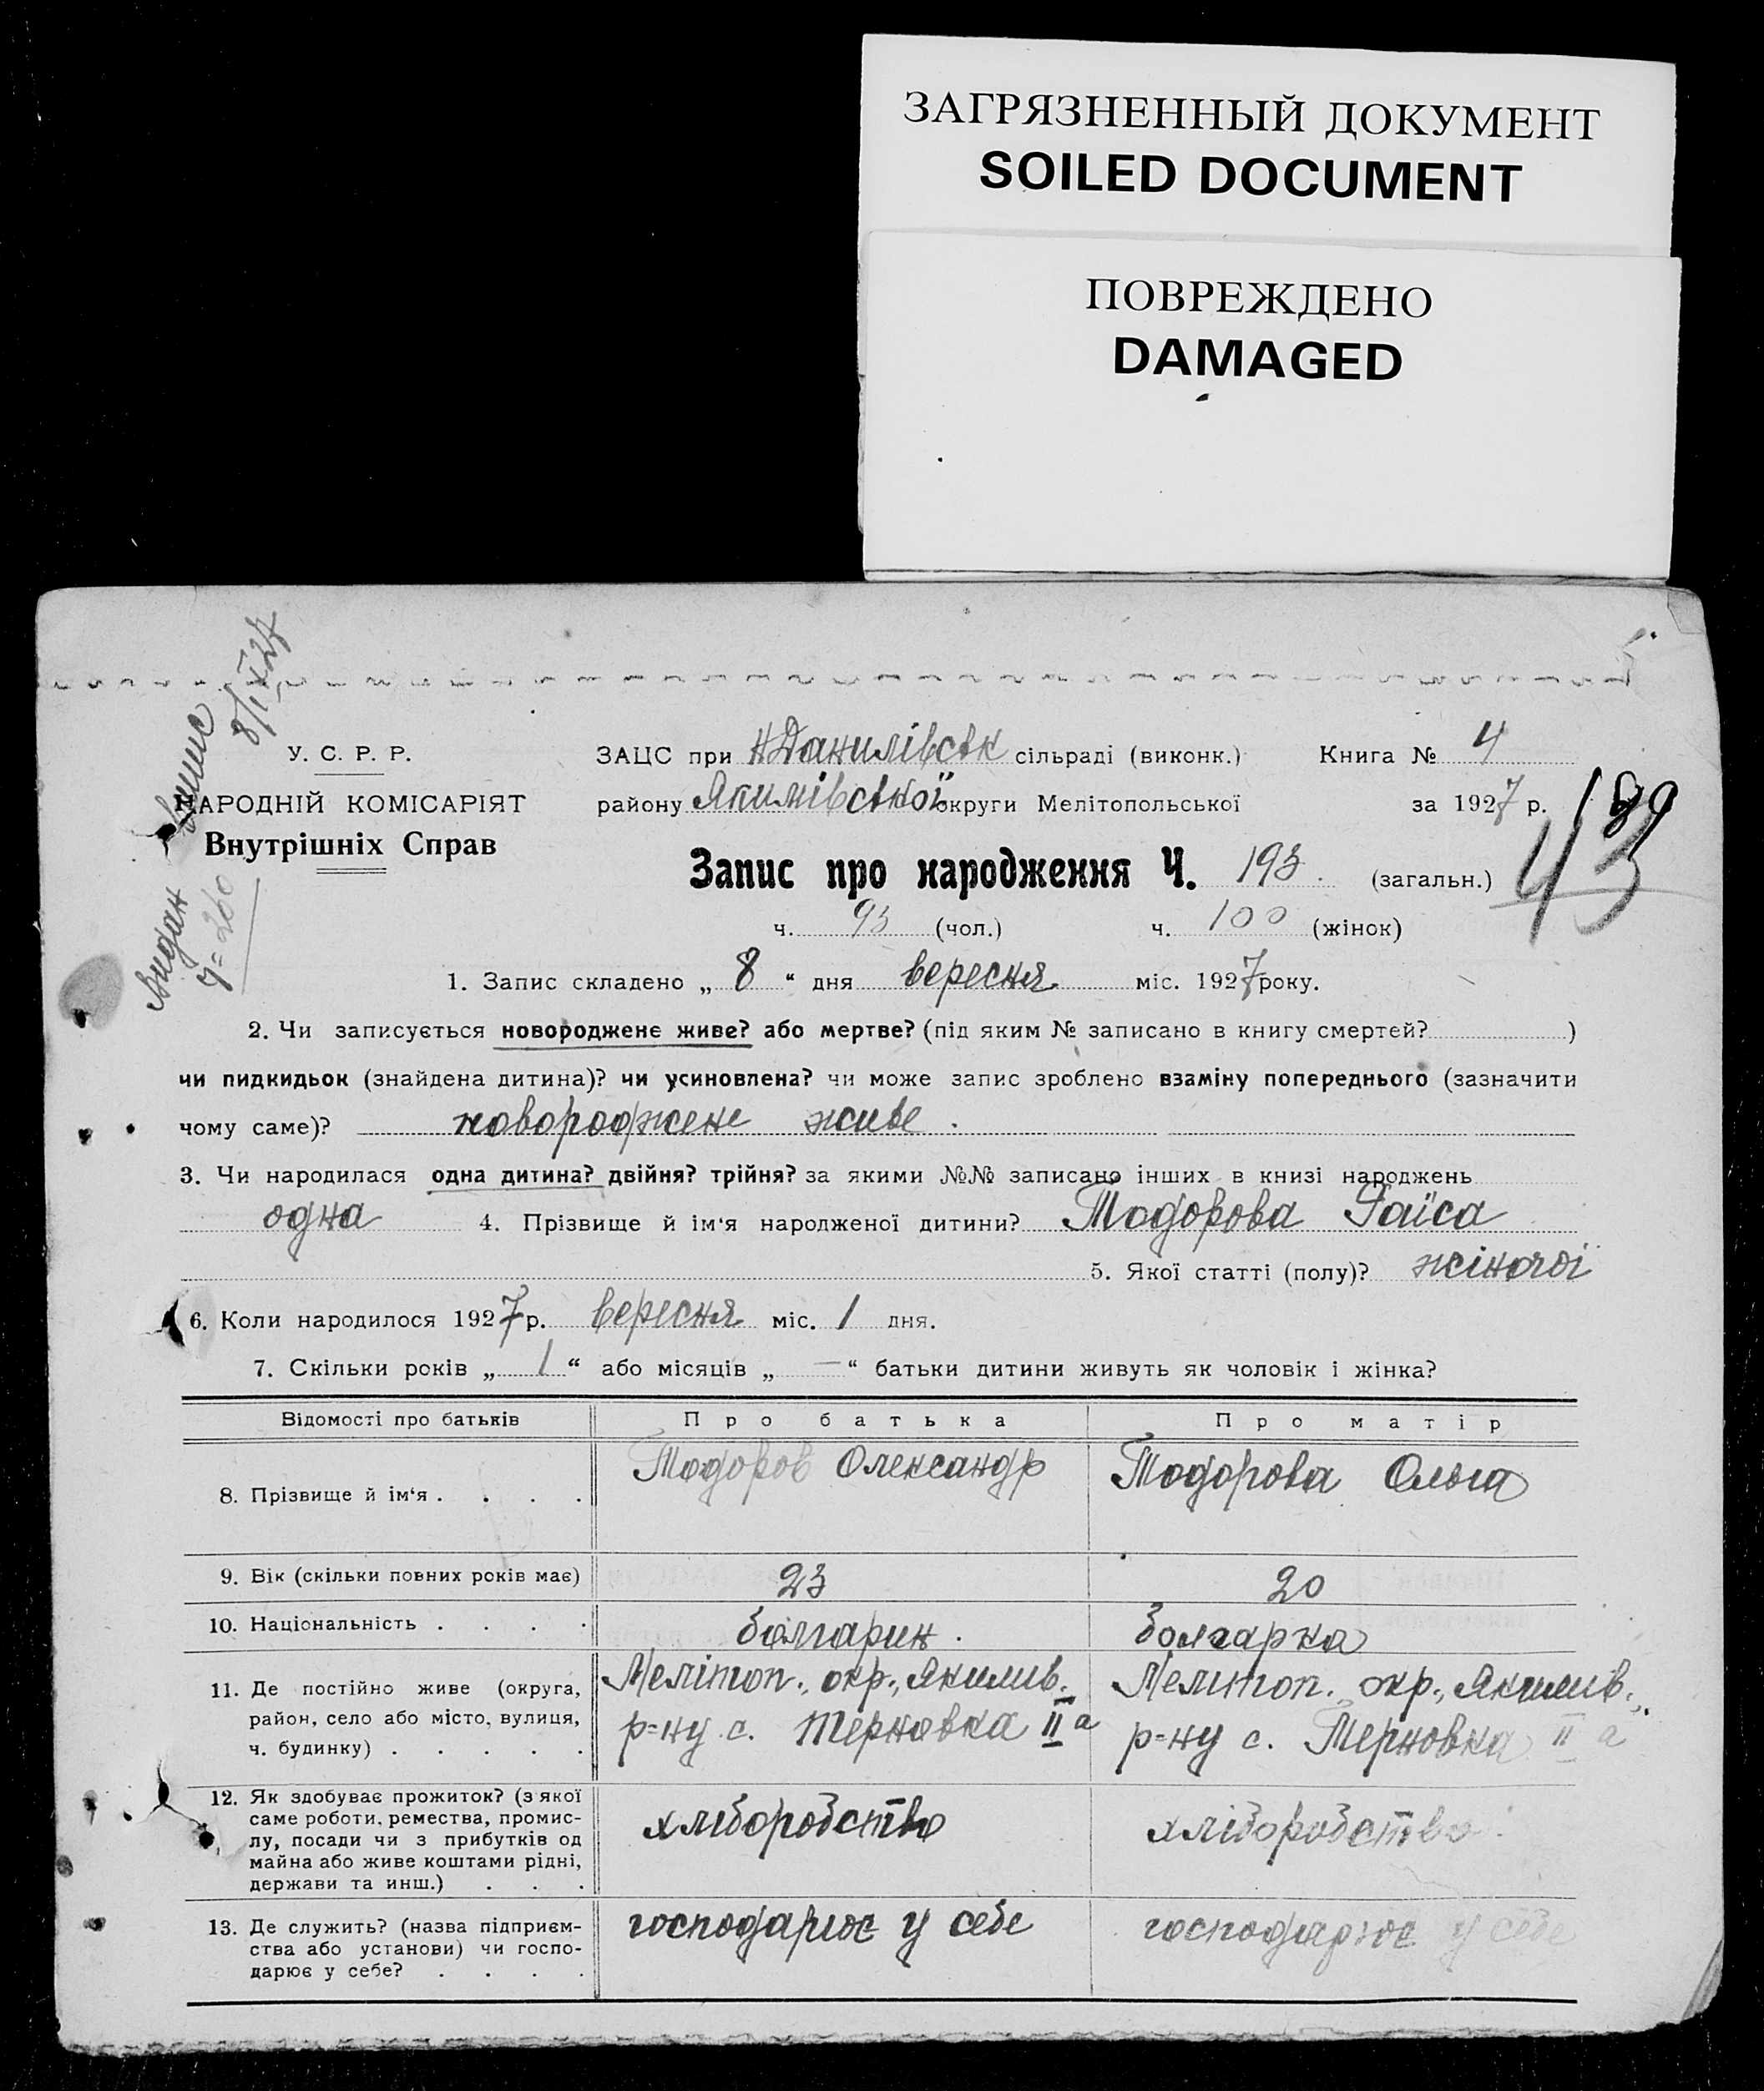 ЗАГРЯЗНЕННЫЙ ДОКУМЕНТ
SOILED DOCUMENT
ПОВРЕЖДЕНО
DAMAGED
Видан випис 8/IX 27
ч=260
У. С. Р. Р.
НАРОДНІЙ КОМІСАРІЯТ
Внутрішніх Справ
ЗАЦС при Н Данилівськ сільраді (виконк.) Книга № 4
району Якимівської округи Мелітопольської за 1927 р.
189
43
Запис про народження Ч. 193. (загальн.)
ч. 93 (чол.) ч. 100 (жінок)
1. Запис складено „ 8 “ дня вересня міс. 1927 року.
2. Чи записується новороджене живе? або мертве? (під яким № записано в книгу смертей? )
чи пидкидьок (знайдена дитина)? чи усиновлена? чи може запис зроблено взаміну попереднього (зазначити
чому саме)? новороджене живе.
3. Чи народилася одна дитина? двійня? трійня? за якими №№ записано інших в книзі народжень
одна 4. Прізвище й ім‘я народженої дитини? Тодорова Раїса
5. Якої статті (полу)? жіночої
6. Коли народилося 1927 р. вересня міс. 1 дня.
7. Скільки років „ 1 “ або місяців „ — “ батьки дитини живуть як чоловік і жінка?
Відомості про батьків Про батька Про матір
8. Прізвище й ім‘я . . . . Тодоров Олександр Тодорова Ольга
9. Вік (скільки повних років має) 23 20
10. Національність . . . . болгарин. болгарка
11. Де постійно живе (округа,
район, село або місто, вулиця,
ч. будинку) . . . . .
Мелітоп., окр., Якимив.
р=ну с. Терновка II а
Мелітоп. окр., Якимив.,
р=ну с. Терновка II а
12. Як здобуває прожиток? (з якої
саме роботи, ремества, промис-
лу, посади чи з прибутків од
майна або живе коштами рідні,
держави та инш.) . . .
хліборобство
хліборобство
13. Де служить? (назва підприєм-
ства або установи) чи госпо-
дарює у себе? . . . .
господарює у себе
господарює у себе